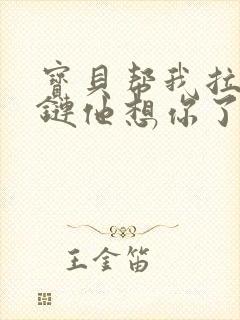 寳貝帮我拉
鏈他想你了
王金笛